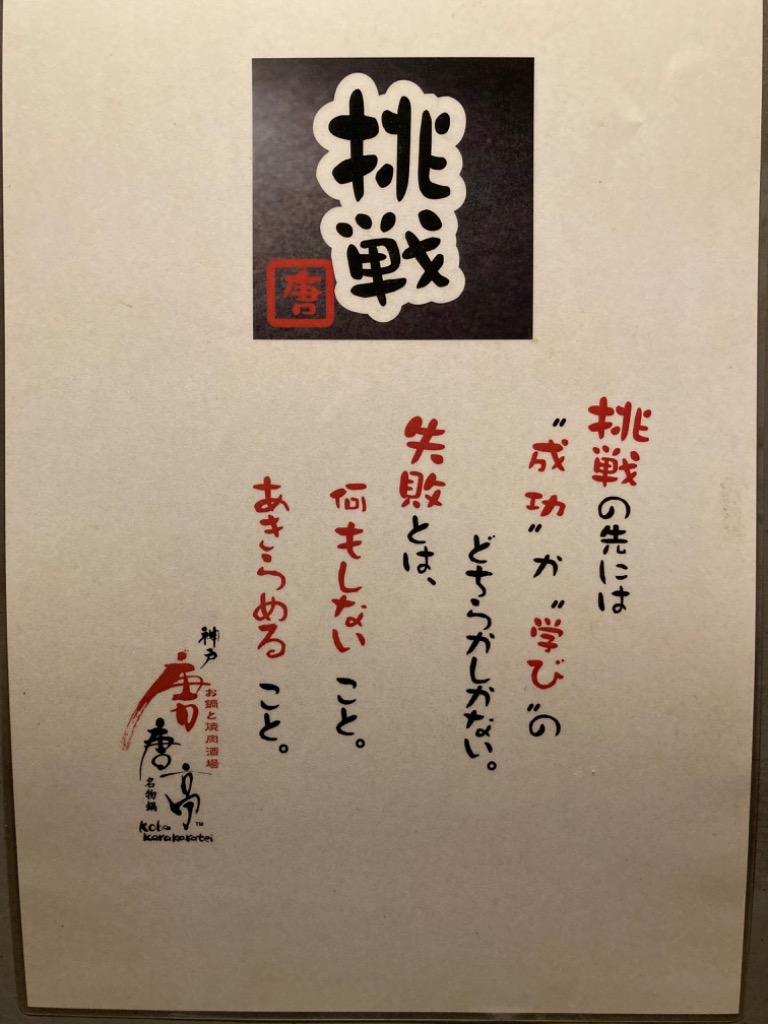 挑戦
唐
挑戦の先には
“成功”か“学び”の
どちらかしかない。
失敗とは、
何もしないこと。
あきらめること。
神戸
唐唐亭
お鍋と焼肉酒場
名物鍋
Kobe
Karakaratei
TM